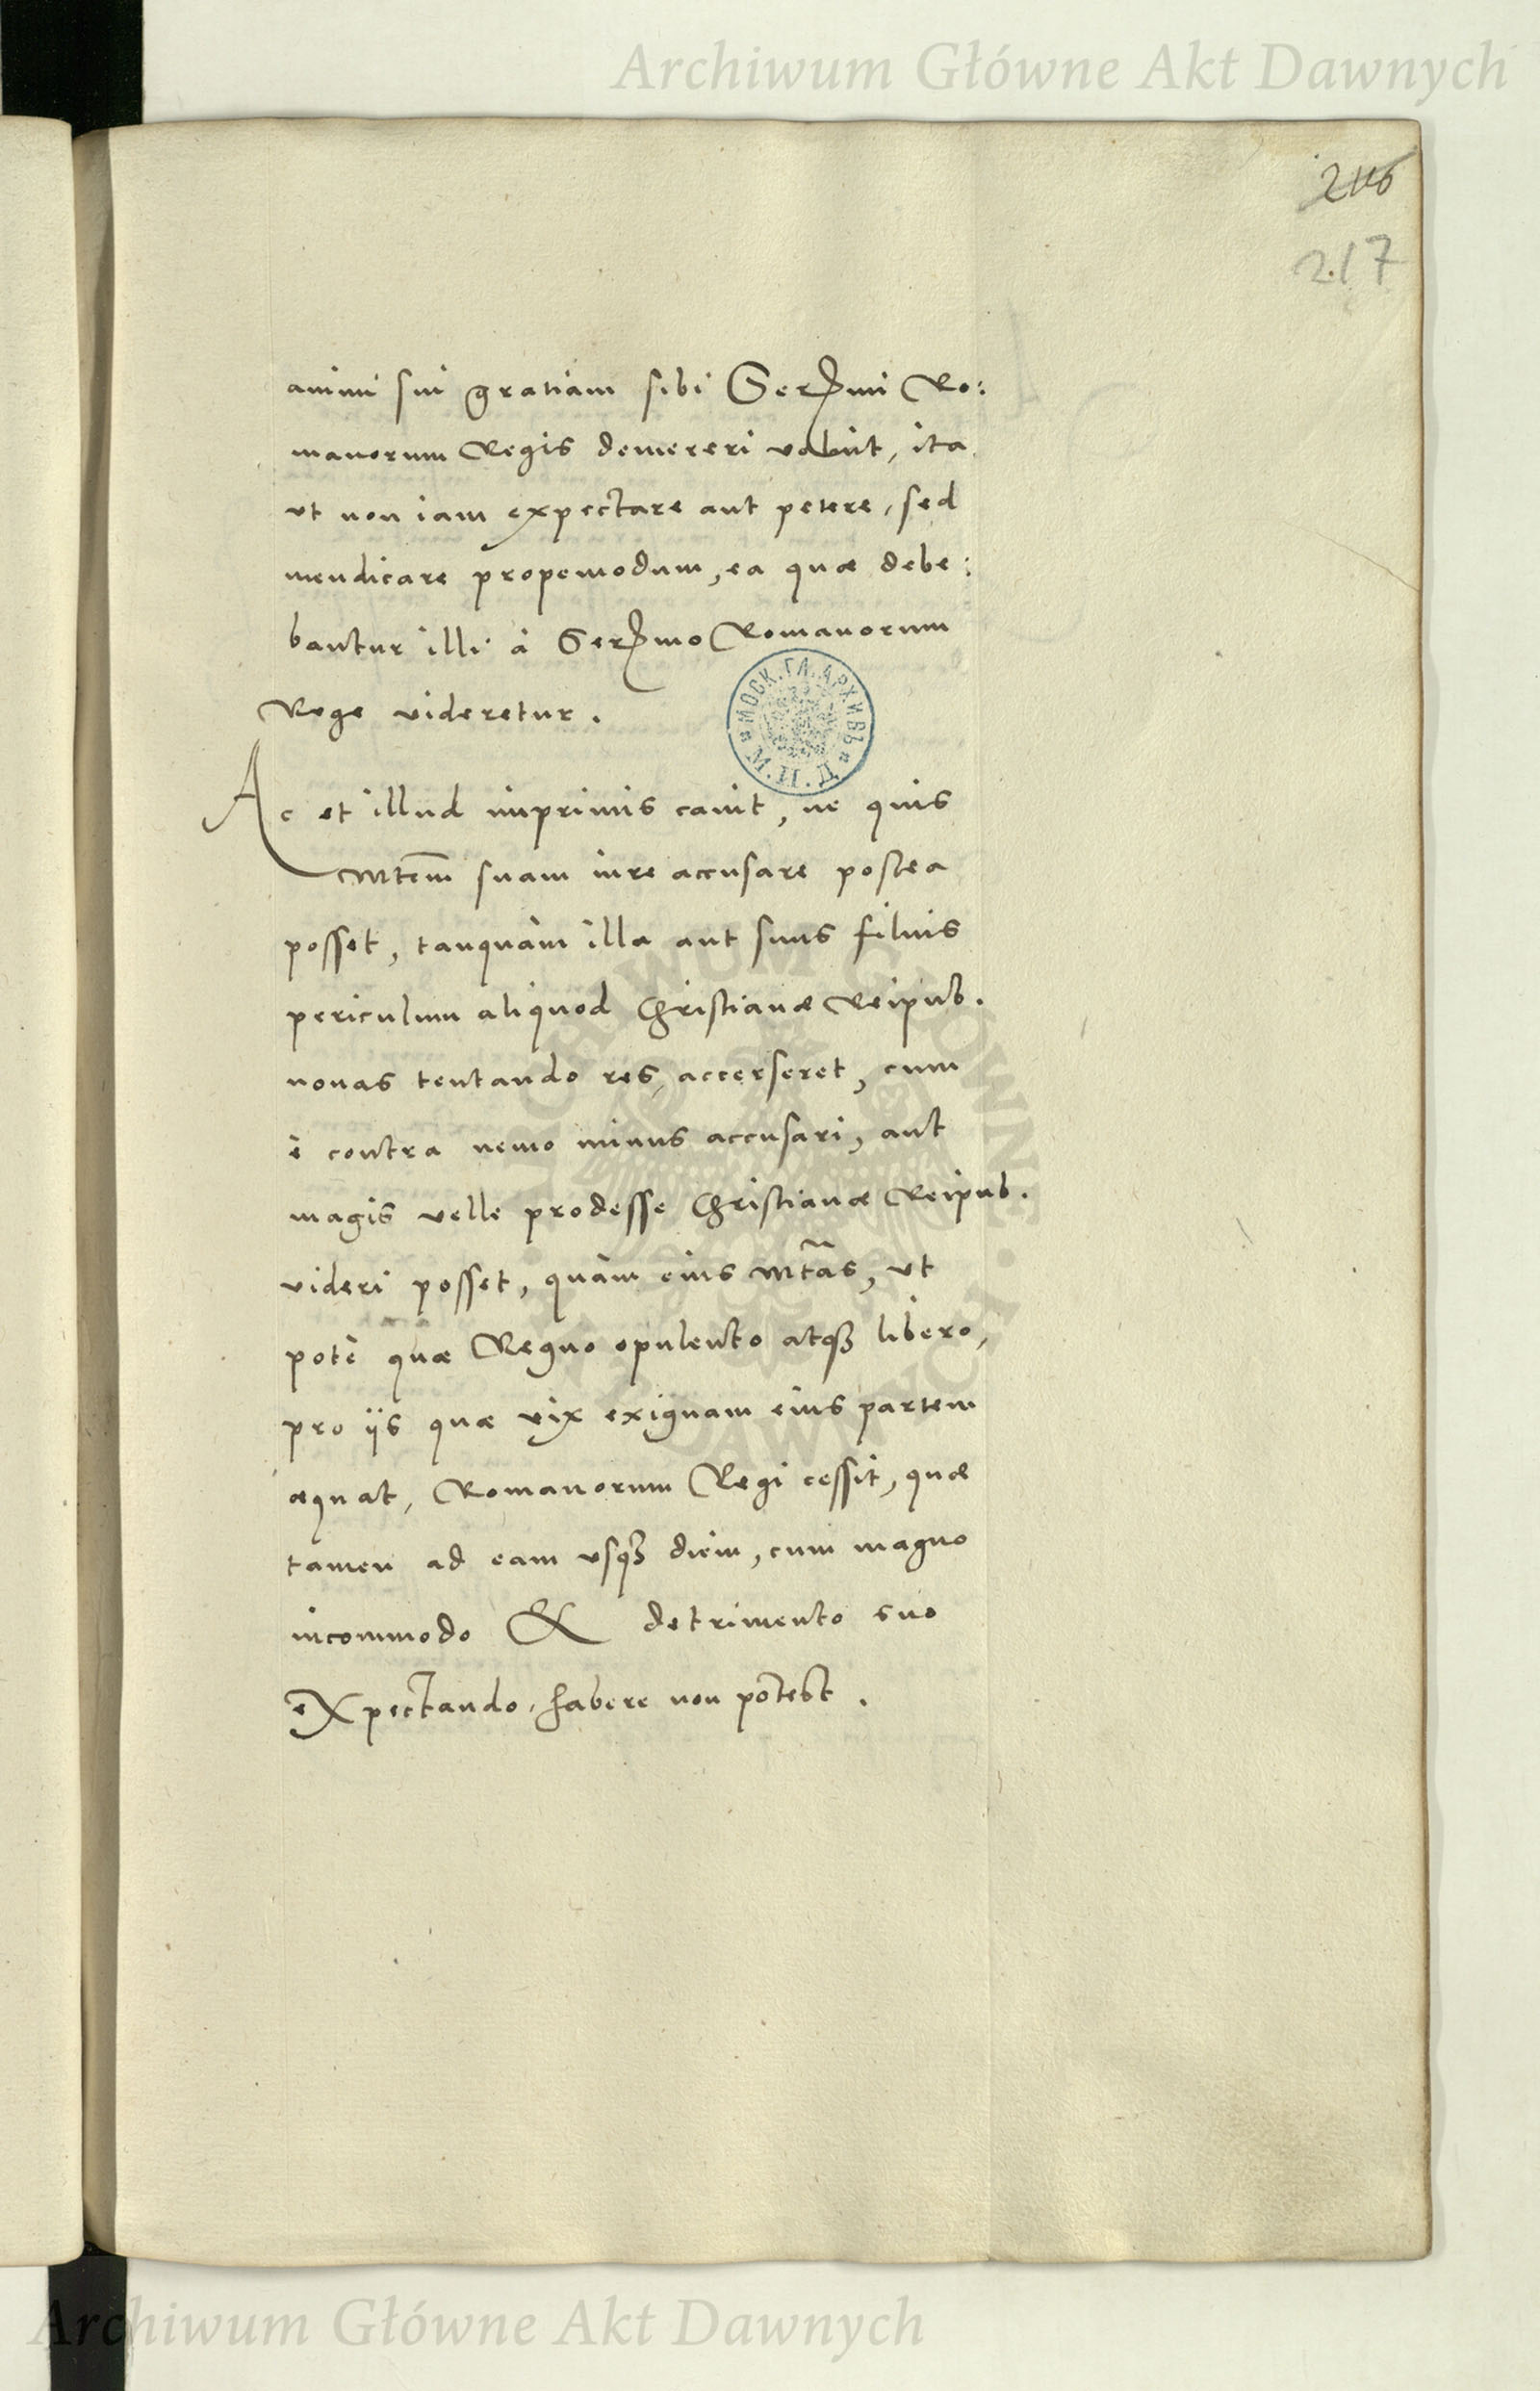 Archiwum Główne Akt Dawnych
217
animi sui gratiam sibi Serᵐⁱ Ro:
manorum Regis demereri voluit, ita
ut non iam expectare aut petere, sed
mendicare propemodum, ea quæ debe:
bantur illi à Serᵐᵒ Romanorum
Rege videretur.
МОСК. ГЛ. АРХИВЪ М. И. Д.
Ac et illud imprimis cavit, ne quis
Mtem suam iure accusare postea
posset, tanquàm illa aut suus filius
periculum aliquod Christianæ Reipub.
novas tentando res, accerseret, cum
è contra nemo minus accusari, aut
magis velle prodesse Christianæ Reipub.
videri posset, quàm eius Mtas, ut
potè quæ Regno opulento atqꝫ libero,
pro iis quæ vix exiguam eius partem
æquat, Romanorum Regi cessit, quæ
tamen ad eam usqꝫ diem, cum magno
incommodo & detrimento suo
expectando, habere non potest.
ARCHIWUM GŁÓWNE AKT DAWNYCH
Archiwum Główne Akt Dawnych